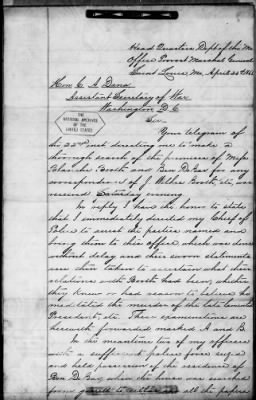 Head Quarters Dept of the Mo
Office Provost Marshal General
Saint Louis, Mo, April 24th 186
Hon C. A. Dana
Assistant Secretary of War
Washington D. C.
THE
NATIONAL ARCHIVES
OF THE
UNITED STATES
Sir
Your telegram of
the 22d inst directing me to make a
thorough search of the premises of Miss
Blanche Booth and Ben DeBar for any
correspondence of J. Wilkes Booth, etc, was
received Saturday evening
In reply I have the honor to state
that I immediately directed my Chief of
Police to arrest the parties named and
bring them to this office which was done
without delay and their sworn statements
were then taken to ascertain what their
relations with Booth had been, whether
they knew or had reason to believe he
meditated the murder of the late lamented
President, etc. Their examinations are
herewith forwarded marked A and B.
In the meantime two of my officers
with a sufficient police force seized
and held possession of the residence of
Ben De Bar, when the house was searched
from garret to cellar and all the papers